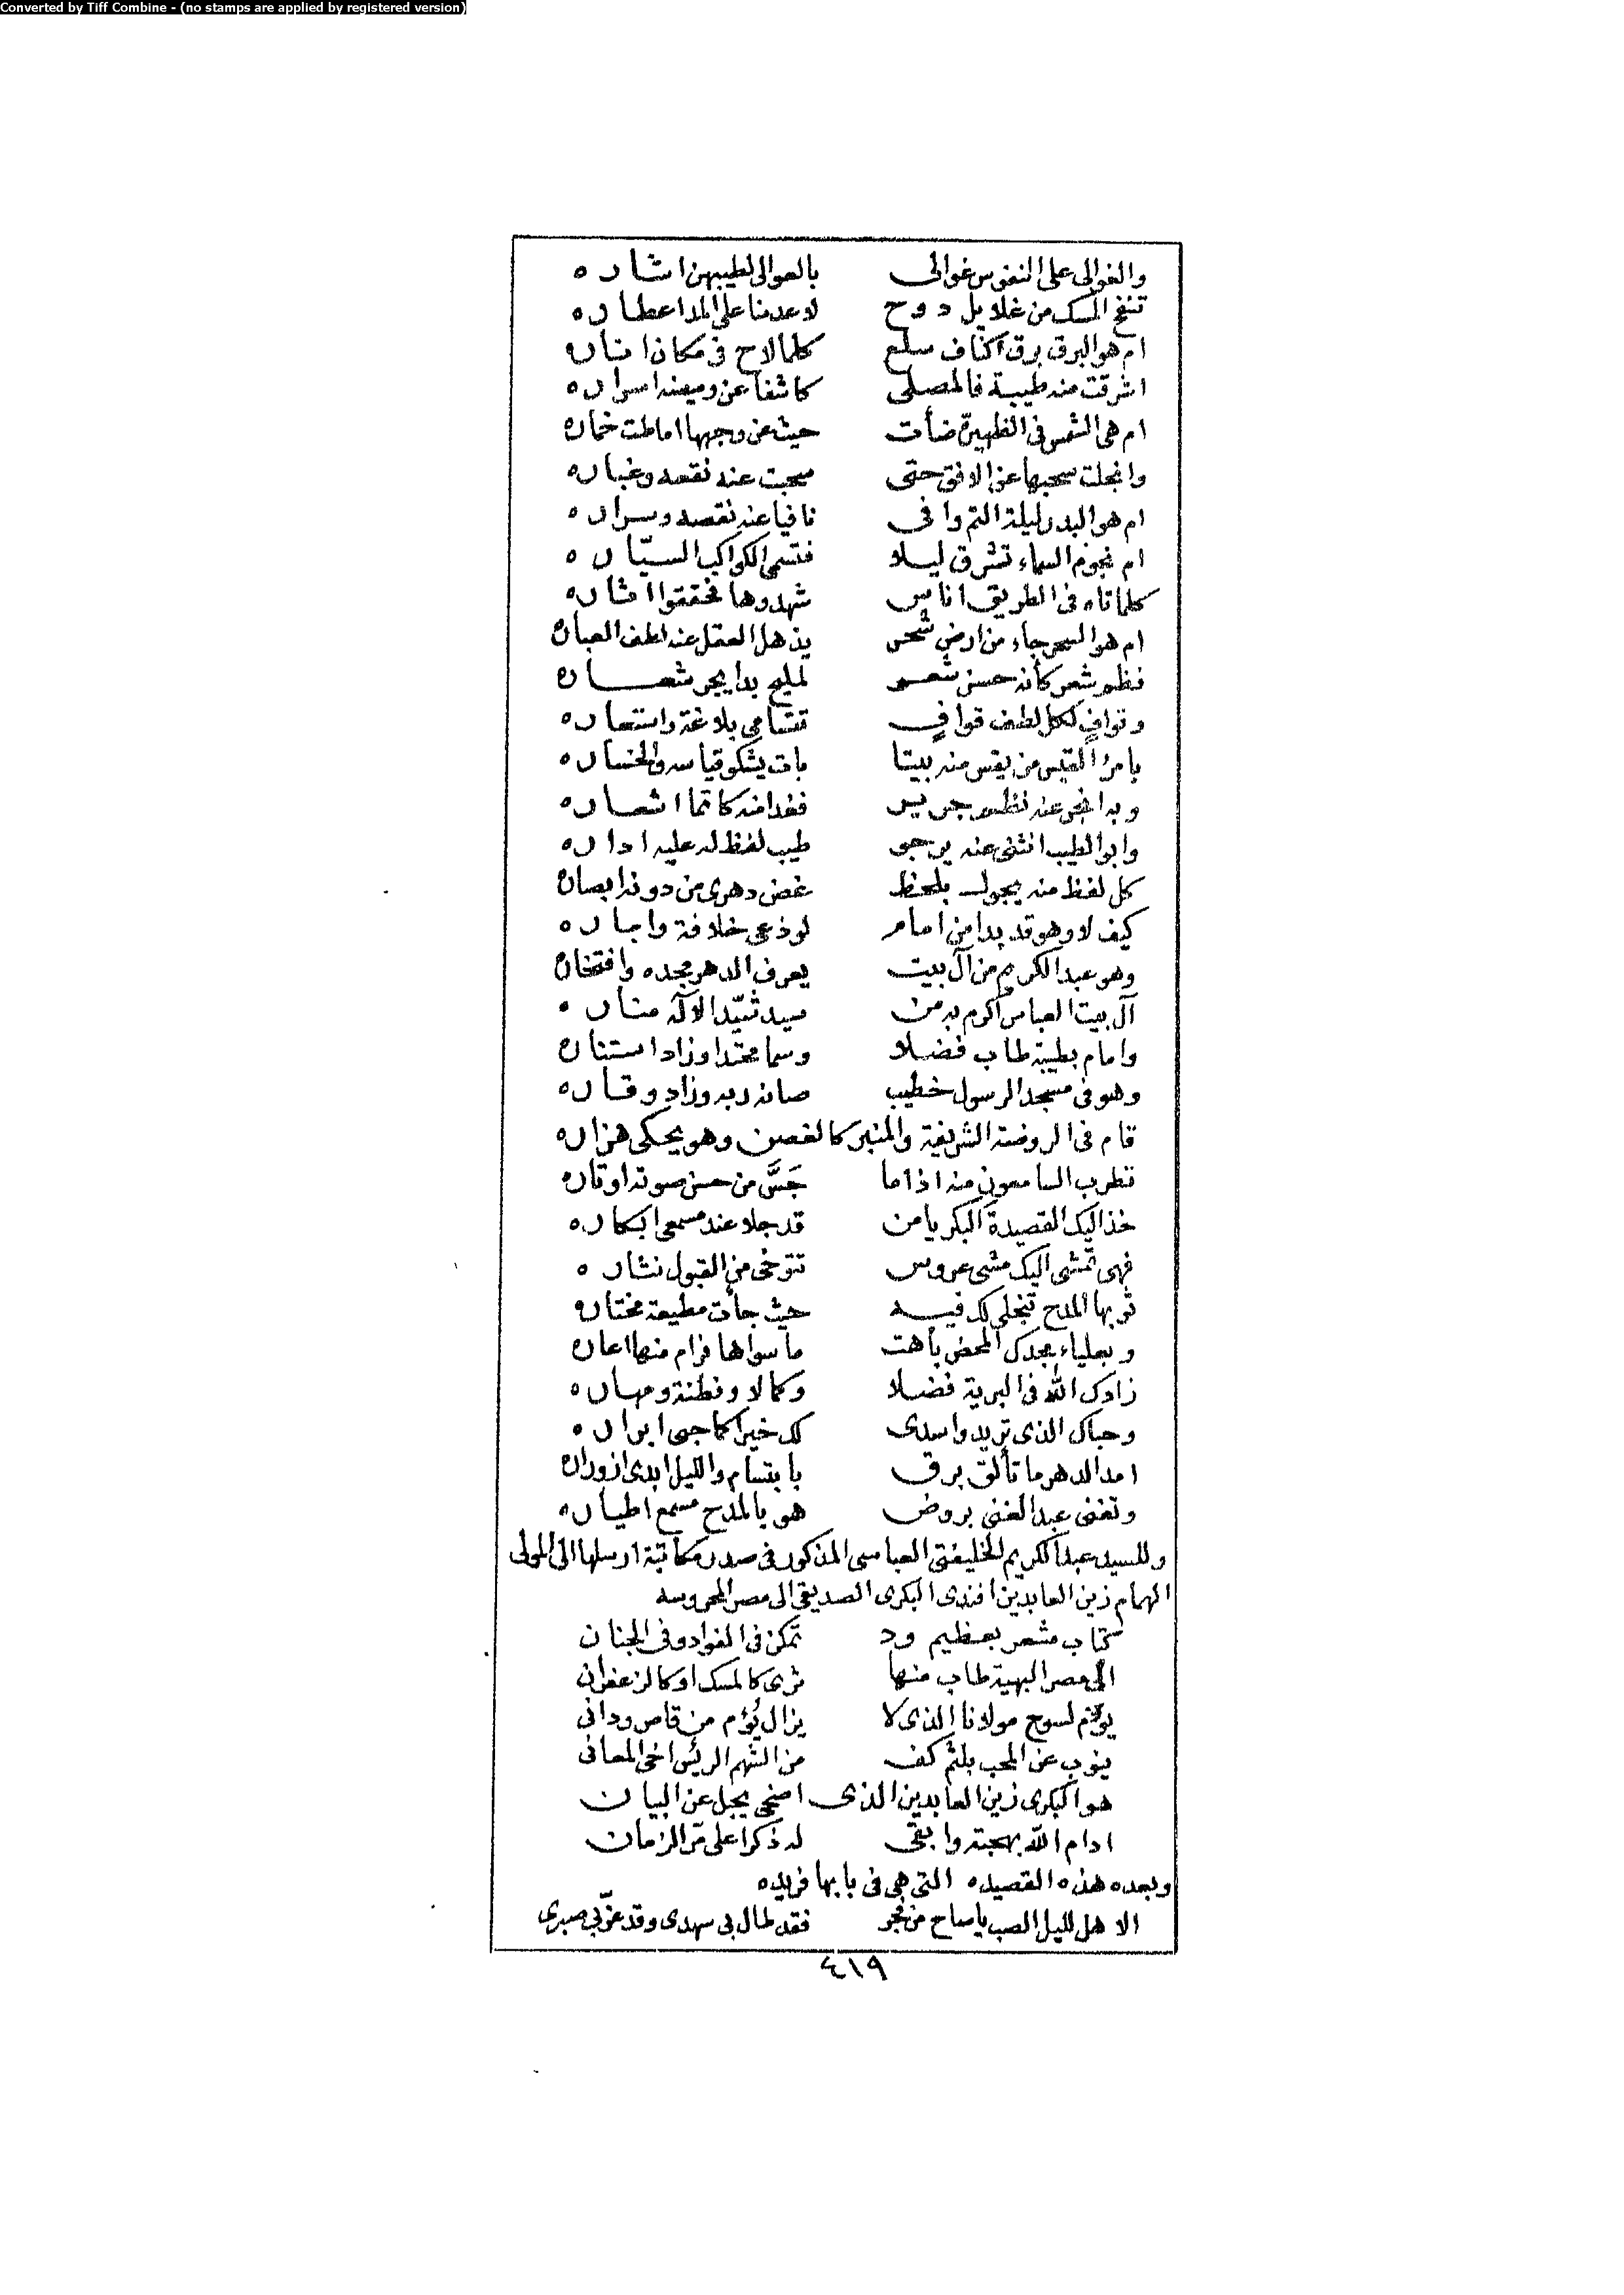 Converted by Tiff Combine - (no stamps are applied by registered version)
والغوالى على النفوس غوالى بالعوالى لطيبهن اشاره
تنفح المسك من غلايل دوح لا عدمنا على المدا عطاره
ام هو البرق برق اكناف سلع كلما لاح فى مكان اناره
اشرقت منه طيبة فالمصلى كاشفا عن وميضه اسراره
ام هى الشمس فى الظهيرة ضأت حيث عن وجهها اماطت خماره
وانجلت سحبها عن الافق حتى سحبت عنه نقعه وغباره
ام هو البدر ليلة التم وافى نافيا عنه نقصه وسراره
ام نجوم السماء تشرق ليلا فتسمى الكواكب السيّاره
كلما تاه فى الطريق اناس شهدوها فحققوا اشاره
ام هو السحر جاء من ارض شحر يذهل العقل عند لطف العباره
نظم شعر كأنه حسن شعر لمليح بدا بجر شعاره
وقوافٍ لكل لطف قوافٍ تتسامى بلاغة واستعاره
يا مرؤ القيس من يقس منه بيتا بات يشكو قياسه والخساره
وبدا فجر عند نظم جرير فغدا منه كاتما اشعاره
وابو الطيب انثنى عنه يرجو طيب لفظ له عليه اداره
كل لفظ منه يجول بلحظ غض دهرى من دونه ابصاره
كيف لا وهو قد بدا من امام لوذعى خلافة واماره
وهو عبد الكريم من آل بيت يعرف الدهر مجده وافتخاره
آل بيت العباس اكرم به من سيد شيّد الآله مناره
وامام بطيبة طاب فضلا وسما محتدا وزاد استناره
وهو فى مسجد الرسول خطيب صانه ربه وزاد وقاره
قام فى الروضة الشريفة والمنبر كالغصن وهو يحكى هزاره
تطرب السامعون منه اذا ما جَسَّ من حسن صوته اوتاره
خذ اليك القصيدة البكر يا من قد جلا عند مسمعى ابكاره
فهى تمشى اليك مشى عروس تتوخى من القبول نثاره
ثوبها المدح تنجلى لك فيه حيث جأت مطيعة مختاره
وبعلياء مجدك المحض باهت ما سواها فرام منها اعاره
زادك الله فى البرية فضلا وكمالا وفطنة ومهاره
وحباك الذى تريد واسدى لك خيرا كما حبى ابراره
امد الدهر ما تألق برق بابتسام والليل ابدى ازوراره
وتغنى عبد الغنى بروض هو بالمدح مسمع اطياره
وللسيد عبد الكريم الخليفتى العباسى المذكور فى صدر مكاتبة ارسلها الى المولى
الهمام زين العابدين افندى البكرى الصديقى الى مصر المحروسه
كتاب مشعر بعظيم ود تمكن فى الفواد وفى الجنان
الى مصر البهية طاب منها ثرى كالمسك او كالزعفران
يؤم لسوح مولانا الذى لا يزال يُؤم من قاص ودانى
ينوب عن المحب بلثم كف من الشهم الرئيس اخى المعانى
هو البكرى زين العابدين الذى اضحى يجل عن البيان
ادام الله بهجته وابقى له ذكرا على مرّ الزمان
وبعده هذه القصيده التى هى فى بابها فريده
الا هل لليل الصب يا صاح من فجر فقد طال بى سهدى وقد عزّ بى صبرى
٤١٩